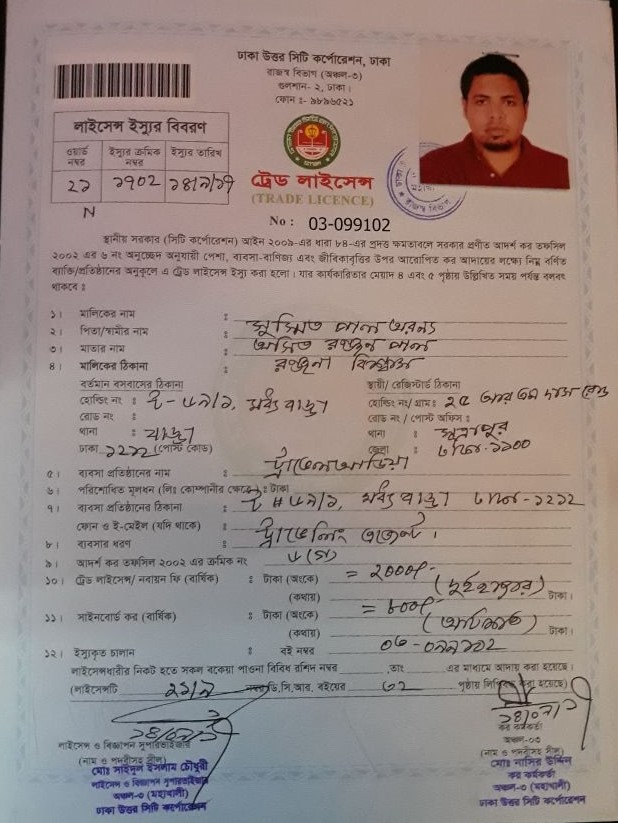 ঢাকা উত্তর সিটি কর্পোরেশন, ঢাকা
রাজস্ব বিভাগ (অঞ্চল-৩)
গুলশান- ২, ঢাকা।
ফোন ঃ- ৯৮৯৬৫২১
লাইসেন্স ইস্যুর বিবরণ
ওয়ার্ড নম্বর
ইস্যুর ক্রমিক নম্বর
ইস্যুর তারিখ
২১
১৭০২
N
ট্রেড লাইসেন্স
(TRADE LICENCE)
No : 03-099102
স্থানীয় সরকার (সিটি কর্পোরেশন) আইন ২০০৯-এর ধারা ৮৪-এর প্রদত্ত ক্ষমতাবলে সরকার প্রণীত আদর্শ কর তফসিল
২০০২ এর ৬ নং অনুচ্ছেদ অনুযায়ী পেশা, ব্যবসা-বাণিজ্য এবং জীবিকাবৃত্তির উপর আরোপিত কর আদায়ের লক্ষ্যে নিম্ন বর্ণিত
ব্যাক্তি/প্রতিষ্ঠানের অনুকূলে এ ট্রেড লাইসেন্স ইস্যু করা হলো। যার কার্যকারিতার মেয়াদ ৪ এবং ৫ পৃষ্ঠায় উল্লিখিত সময় পর্যন্ত বলবৎ
থাকবে ঃ
১। মালিকের নাম ঃ সুস্মিত পাল অরন্য
২। পিতা/স্বামীর নাম ঃ অসিত রঞ্জন পাল
৩। মাতার নাম ঃ রঞ্জনা বিশ্বাস
৪। মালিকের ঠিকানা
বর্তমান বসবাসের ঠিকানা
হোল্ডিং নং ঃ মধ্য বাড্ডা
রোড নং ঃ
থানা ঃ বাড্ডা
ঢাকা ১২১২ (পোস্ট কোড)
স্থায়ী/ রেজিস্টার্ড ঠিকানা
হোল্ডিং নং/ গ্রাম ঃ ২৫ আর এম দাস রোড
রোড নং / পোস্ট অফিস ঃ
থানা ঃ সূত্রাপুর
জেলা ঃ ঢাকা-১১০০
৫। ব্যবসা প্রতিষ্ঠানের নাম ঃ
৬। পরিশোধিত মূলধন (লিঃ কোম্পানীর ক্ষেত্রে) ঃ টাকা
৭। ব্যবসা প্রতিষ্ঠানের ঠিকানা ঃ মধ্য বাড্ডা ঢাকা-১২১২
ফোন ও ই-মেইল (যদি থাকে)
৮। ব্যবসার ধরণ ঃ ট্রাভেলিং এজেন্ট।
৯। আদর্শ কর তফসিল ২০০২ এর ক্রমিক নং
১০। ট্রেড লাইসেন্স/ নবায়ন ফি (বার্ষিক) ঃ টাকা (অংকে) = ২০০০/-
(কথায়) (দুইহাজার) টাকা।
১১। সাইনবোর্ড কর (বার্ষিক) ঃ টাকা (অংকে) = ৮০০/-
(কথায়) (আটশত) টাকা।
১২। ইস্যুকৃত চালান ঃ বই নম্বর ০৩-০৯৯১০২
লাইসেন্সধারীর নিকট হতে সকল বকেয়া পাওনা বিবিধ রশিদ নম্বর তাং এর মাধ্যমে আদায় করা হয়েছে।
(লাইসেন্সটি নম্বর ডি.সি.আর. বইয়ের ৩২ পৃষ্ঠায় লিপিবদ্ধ করা হয়েছে)
লাইসেন্স ও বিজ্ঞাপন সুপারভাইজার
(নাম ও পদবীসহ সীল)
মোঃ সাইদুল ইসলাম চৌধুরী
লাইসেন্স ও বিজ্ঞাপন সুপারভাইজার
অঞ্চল-৩ (মহাখালী)
ঢাকা উত্তর সিটি কর্পোরেশন
কর কর্মকর্তা
অঞ্চল-০৩
(নাম ও পদবীসহ সীল)
মোঃ নাসির উদ্দিন
কর কর্মকর্তা
অঞ্চল-৩ (মহাখালী)
ঢাকা উত্তর সিটি কর্পোরেশন